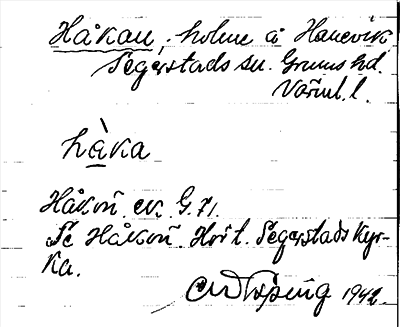 Håkan, holme å Hanevik
Segerstads sn. Grums hd.
Värml. l.
hàka
Håkan̄. ek. G. 71.
Se Håkan̄. Hörl. Segerstads Kyr-
ka.
1942.